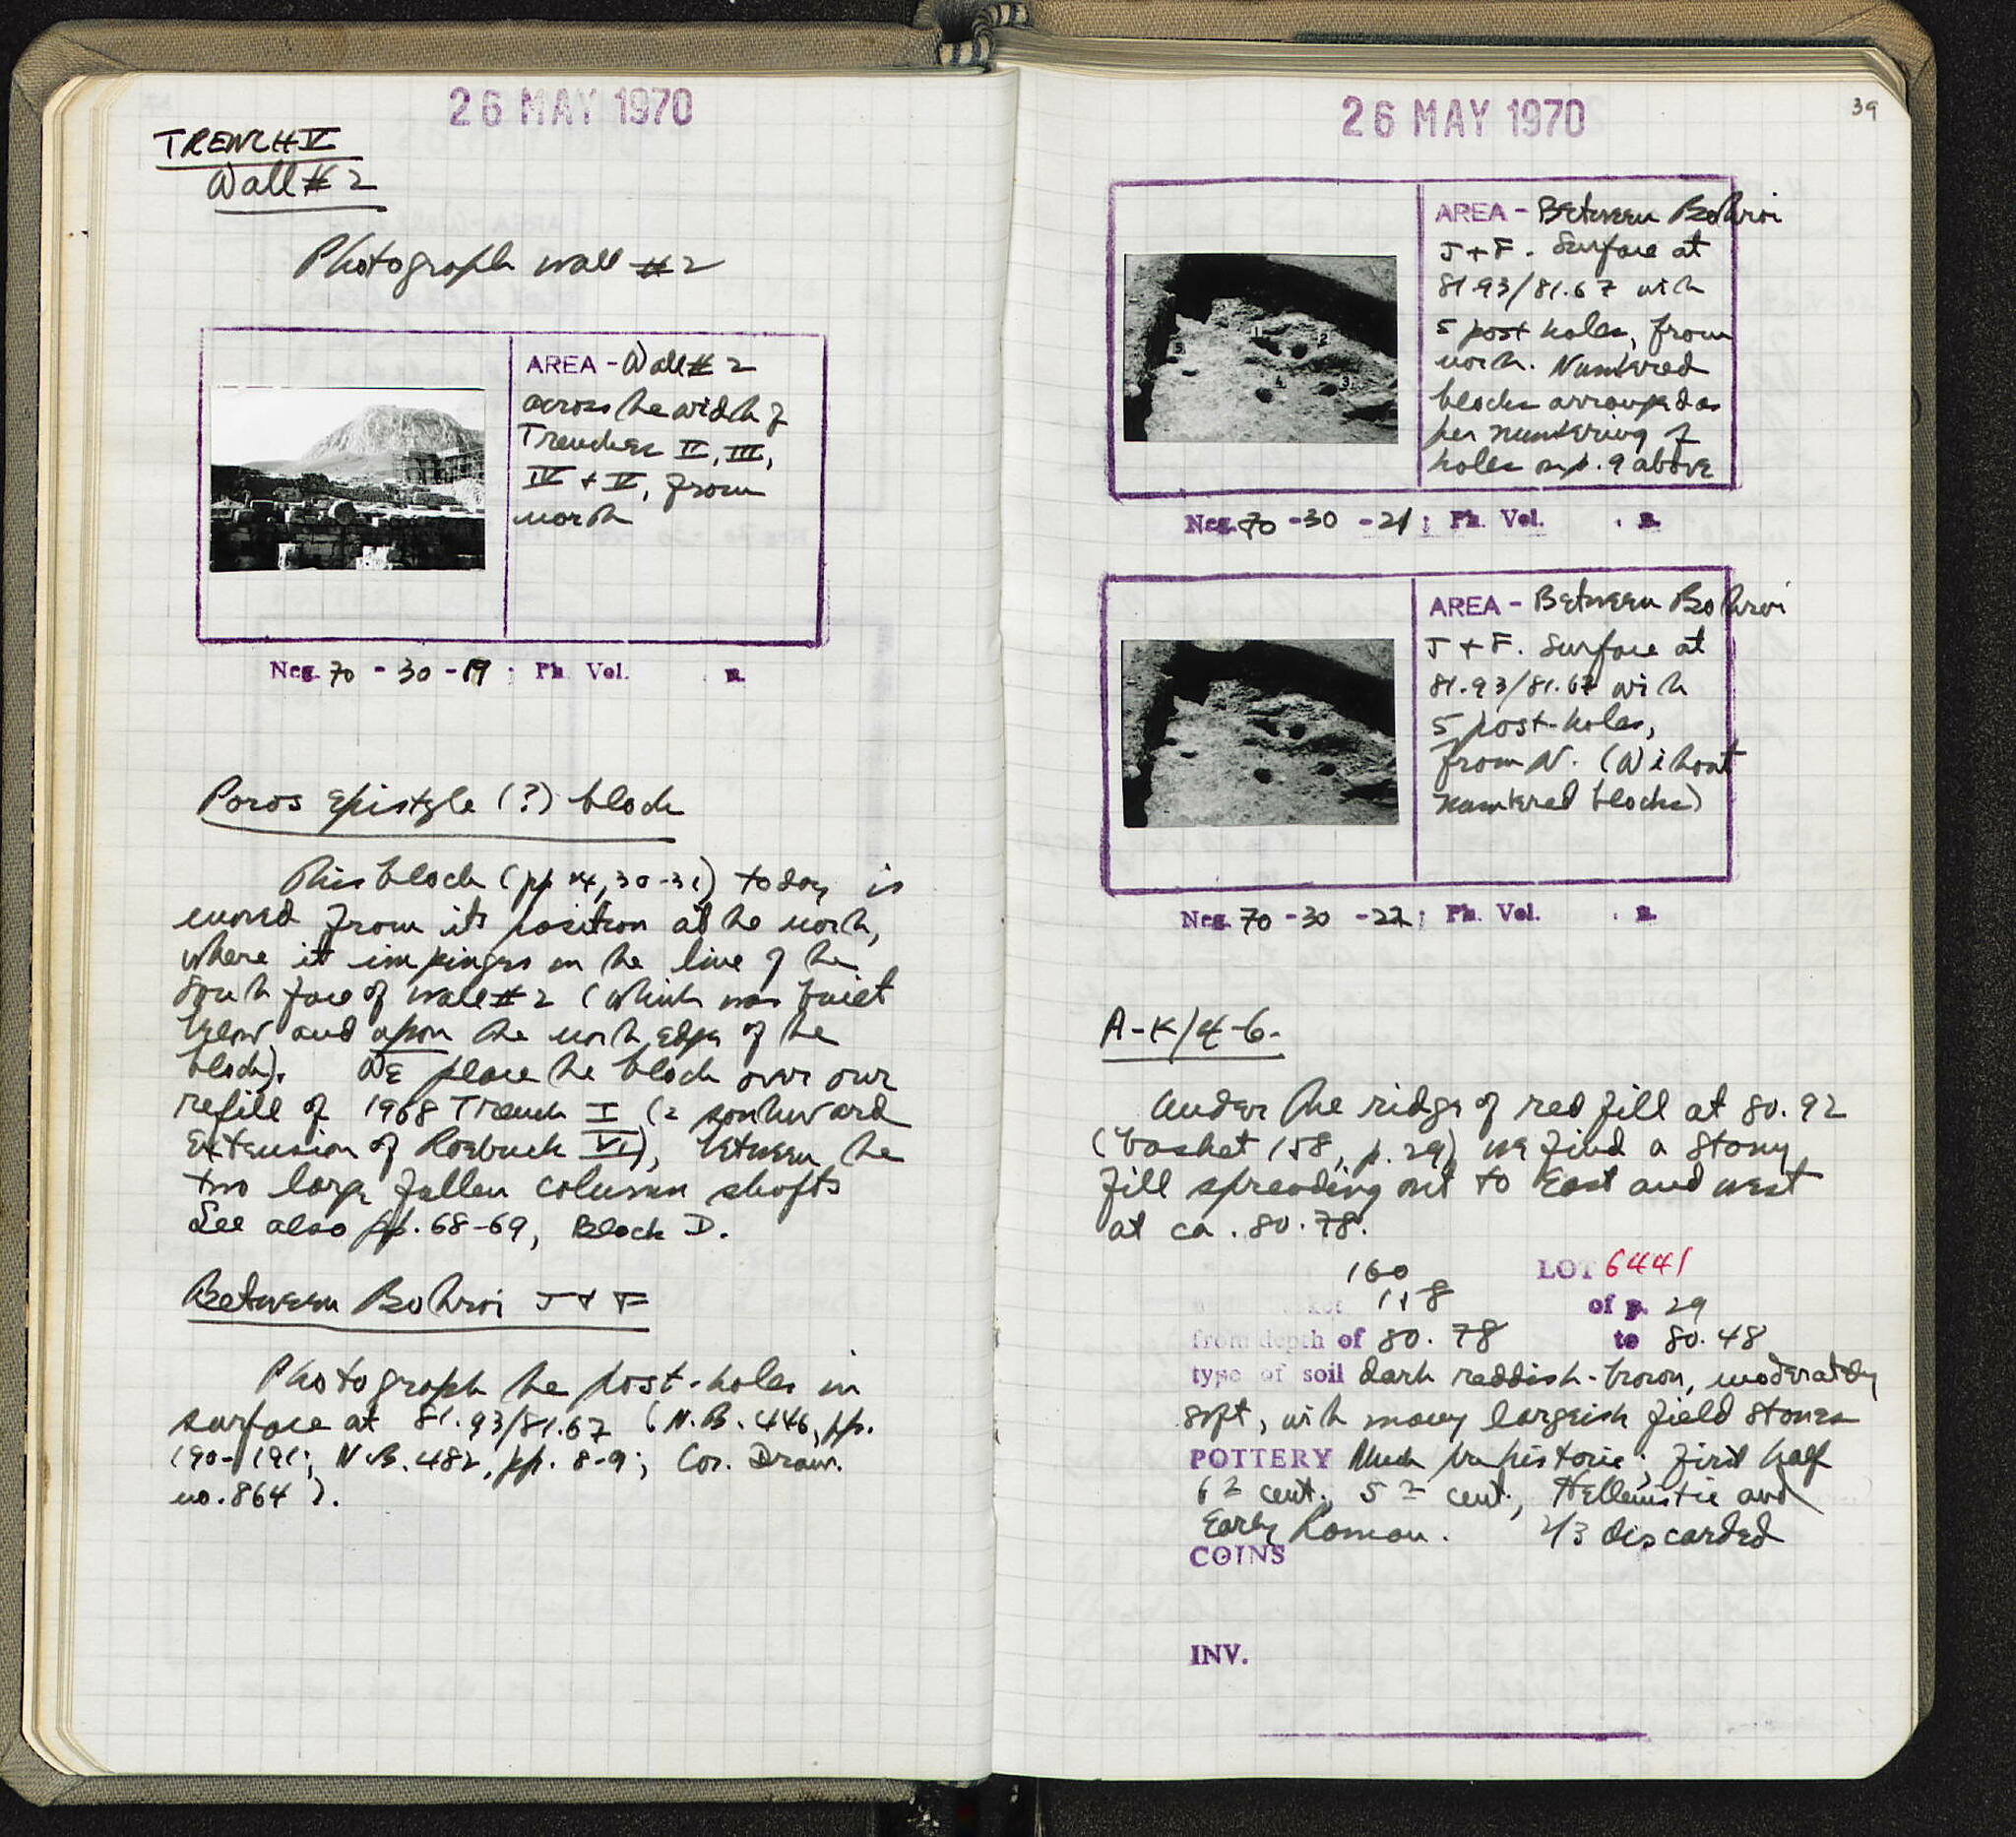 26 MAY 1970
TRENCH V
Wall # 2
Photograph wall # 2
AREA - Wall # 2
across the width of
Trenches II, III,
IV + V, from
north
Neg. 70 - 30 - 19 ; Ph. Vol. . p.
Poros epistyle (?) block
This block (pp 14, 30-31) today is
moved from its position at the north,
where it impinges on the line of the
south face of wall # 2 (which was built
below and upon the north edge of the
block). We place the block over our
refill of 1968 Trench I (a southward
extension of Roebuck VI), between the
two large fallen column shafts
See also pp. 68-69, Block D.
Between Bothroi J + F
Photograph the post-holes in
surface at 81.93/81.67 (N.B. 446, pp.
190-191; N.B. 482, pp. 8-9; Cor. Draw.
no. 864).
26 MAY 1970
39
AREA - Between Bothroi
J + F. Surface at
81.93/81.67 with
5 post holes, from
north. Numbered
blocks arranged as
per numbering of
holes on p. 9 above
1
2
3
4
5
Neg. 70 - 30 - 21 ; Ph. Vol. . p.
AREA - Between Bothroi
J + F. Surface at
81.93/81.67 with
5 post-holes,
from N. (Without
numbered blocks)
Neg. 70 - 30 - 22 ; Ph. Vol. . p.
A-K/4-6.
Under the ridge of red fill at 80.92
(basket 158, p. 29) we find a stony
fill spreading out to East and west
at ca. 80.78.
160 LOT 6441
158 of p. 29
from depth of 80.78 to 80.48
type of soil dark reddish-brown, moderately
soft, with many largeish field stones
POTTERY Much prehistoric; first half
6th cent., 5th cent., Hellenistic and
Early Roman. 2/3 discarded
COINS
INV.